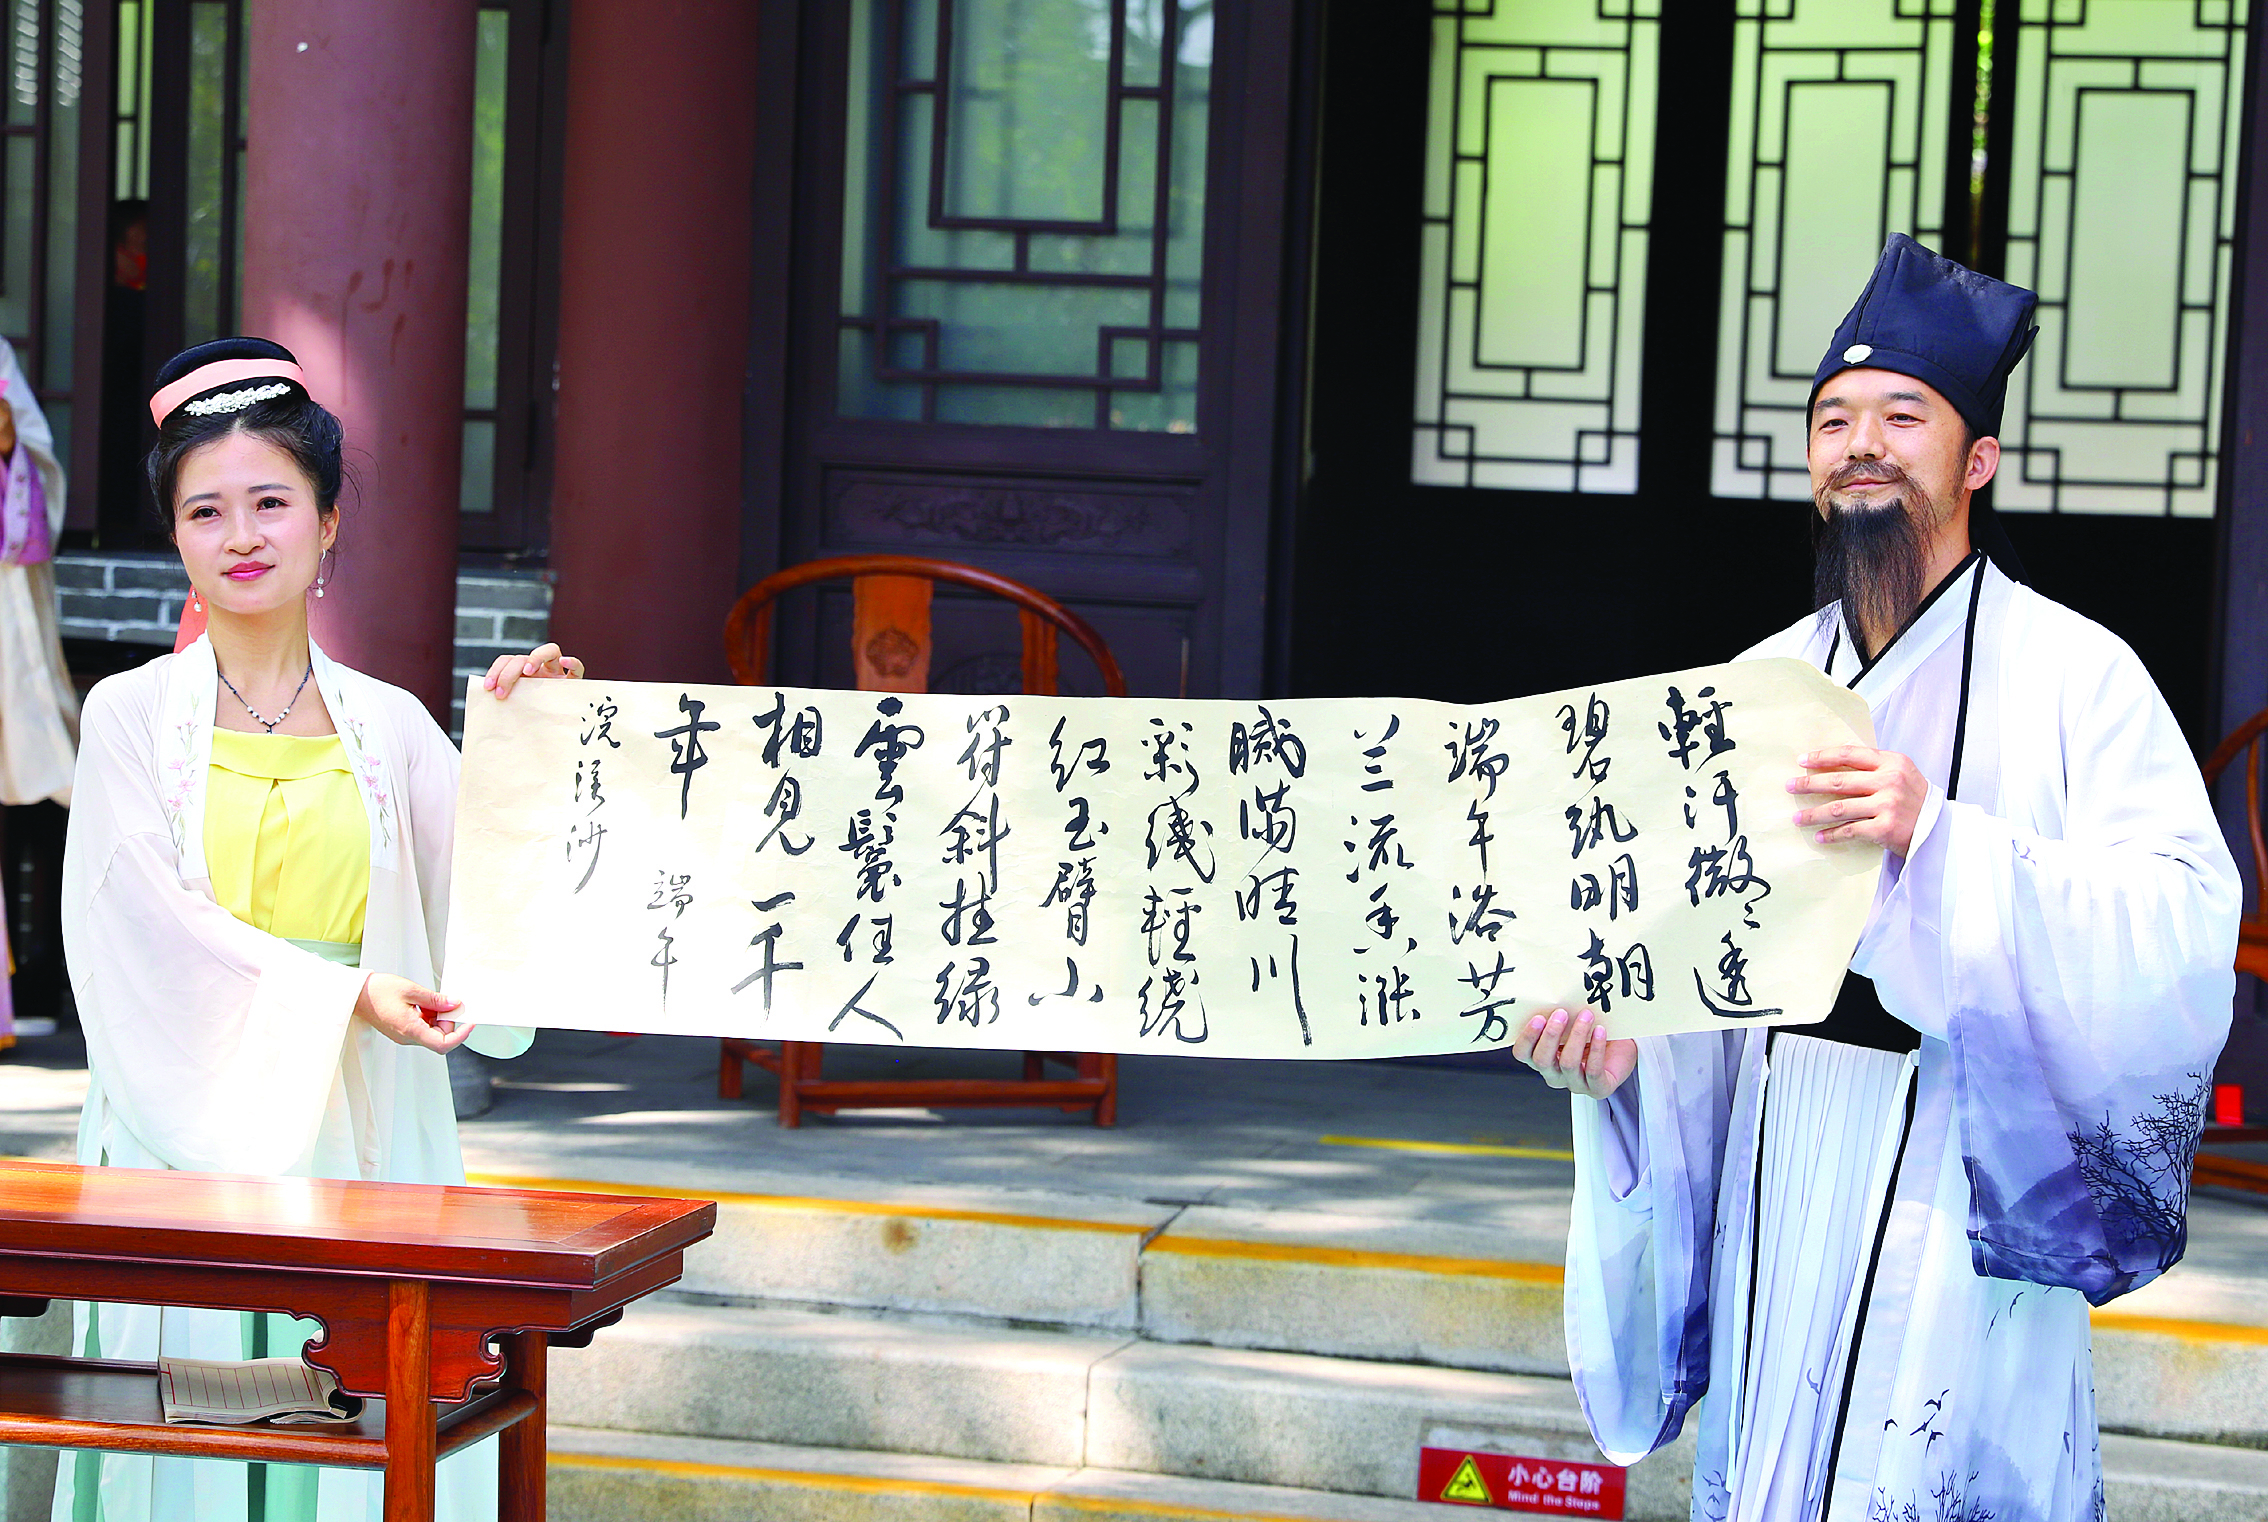 輕汗微〻透
碧纨明朝
端午浴芳
兰流香涨
腻满晴川
彩线輕绕
红玉臂小
符斜挂绿
雲鬟佳人
相見一千
年 端午
浣溪沙
小心台阶
Mind the Steps